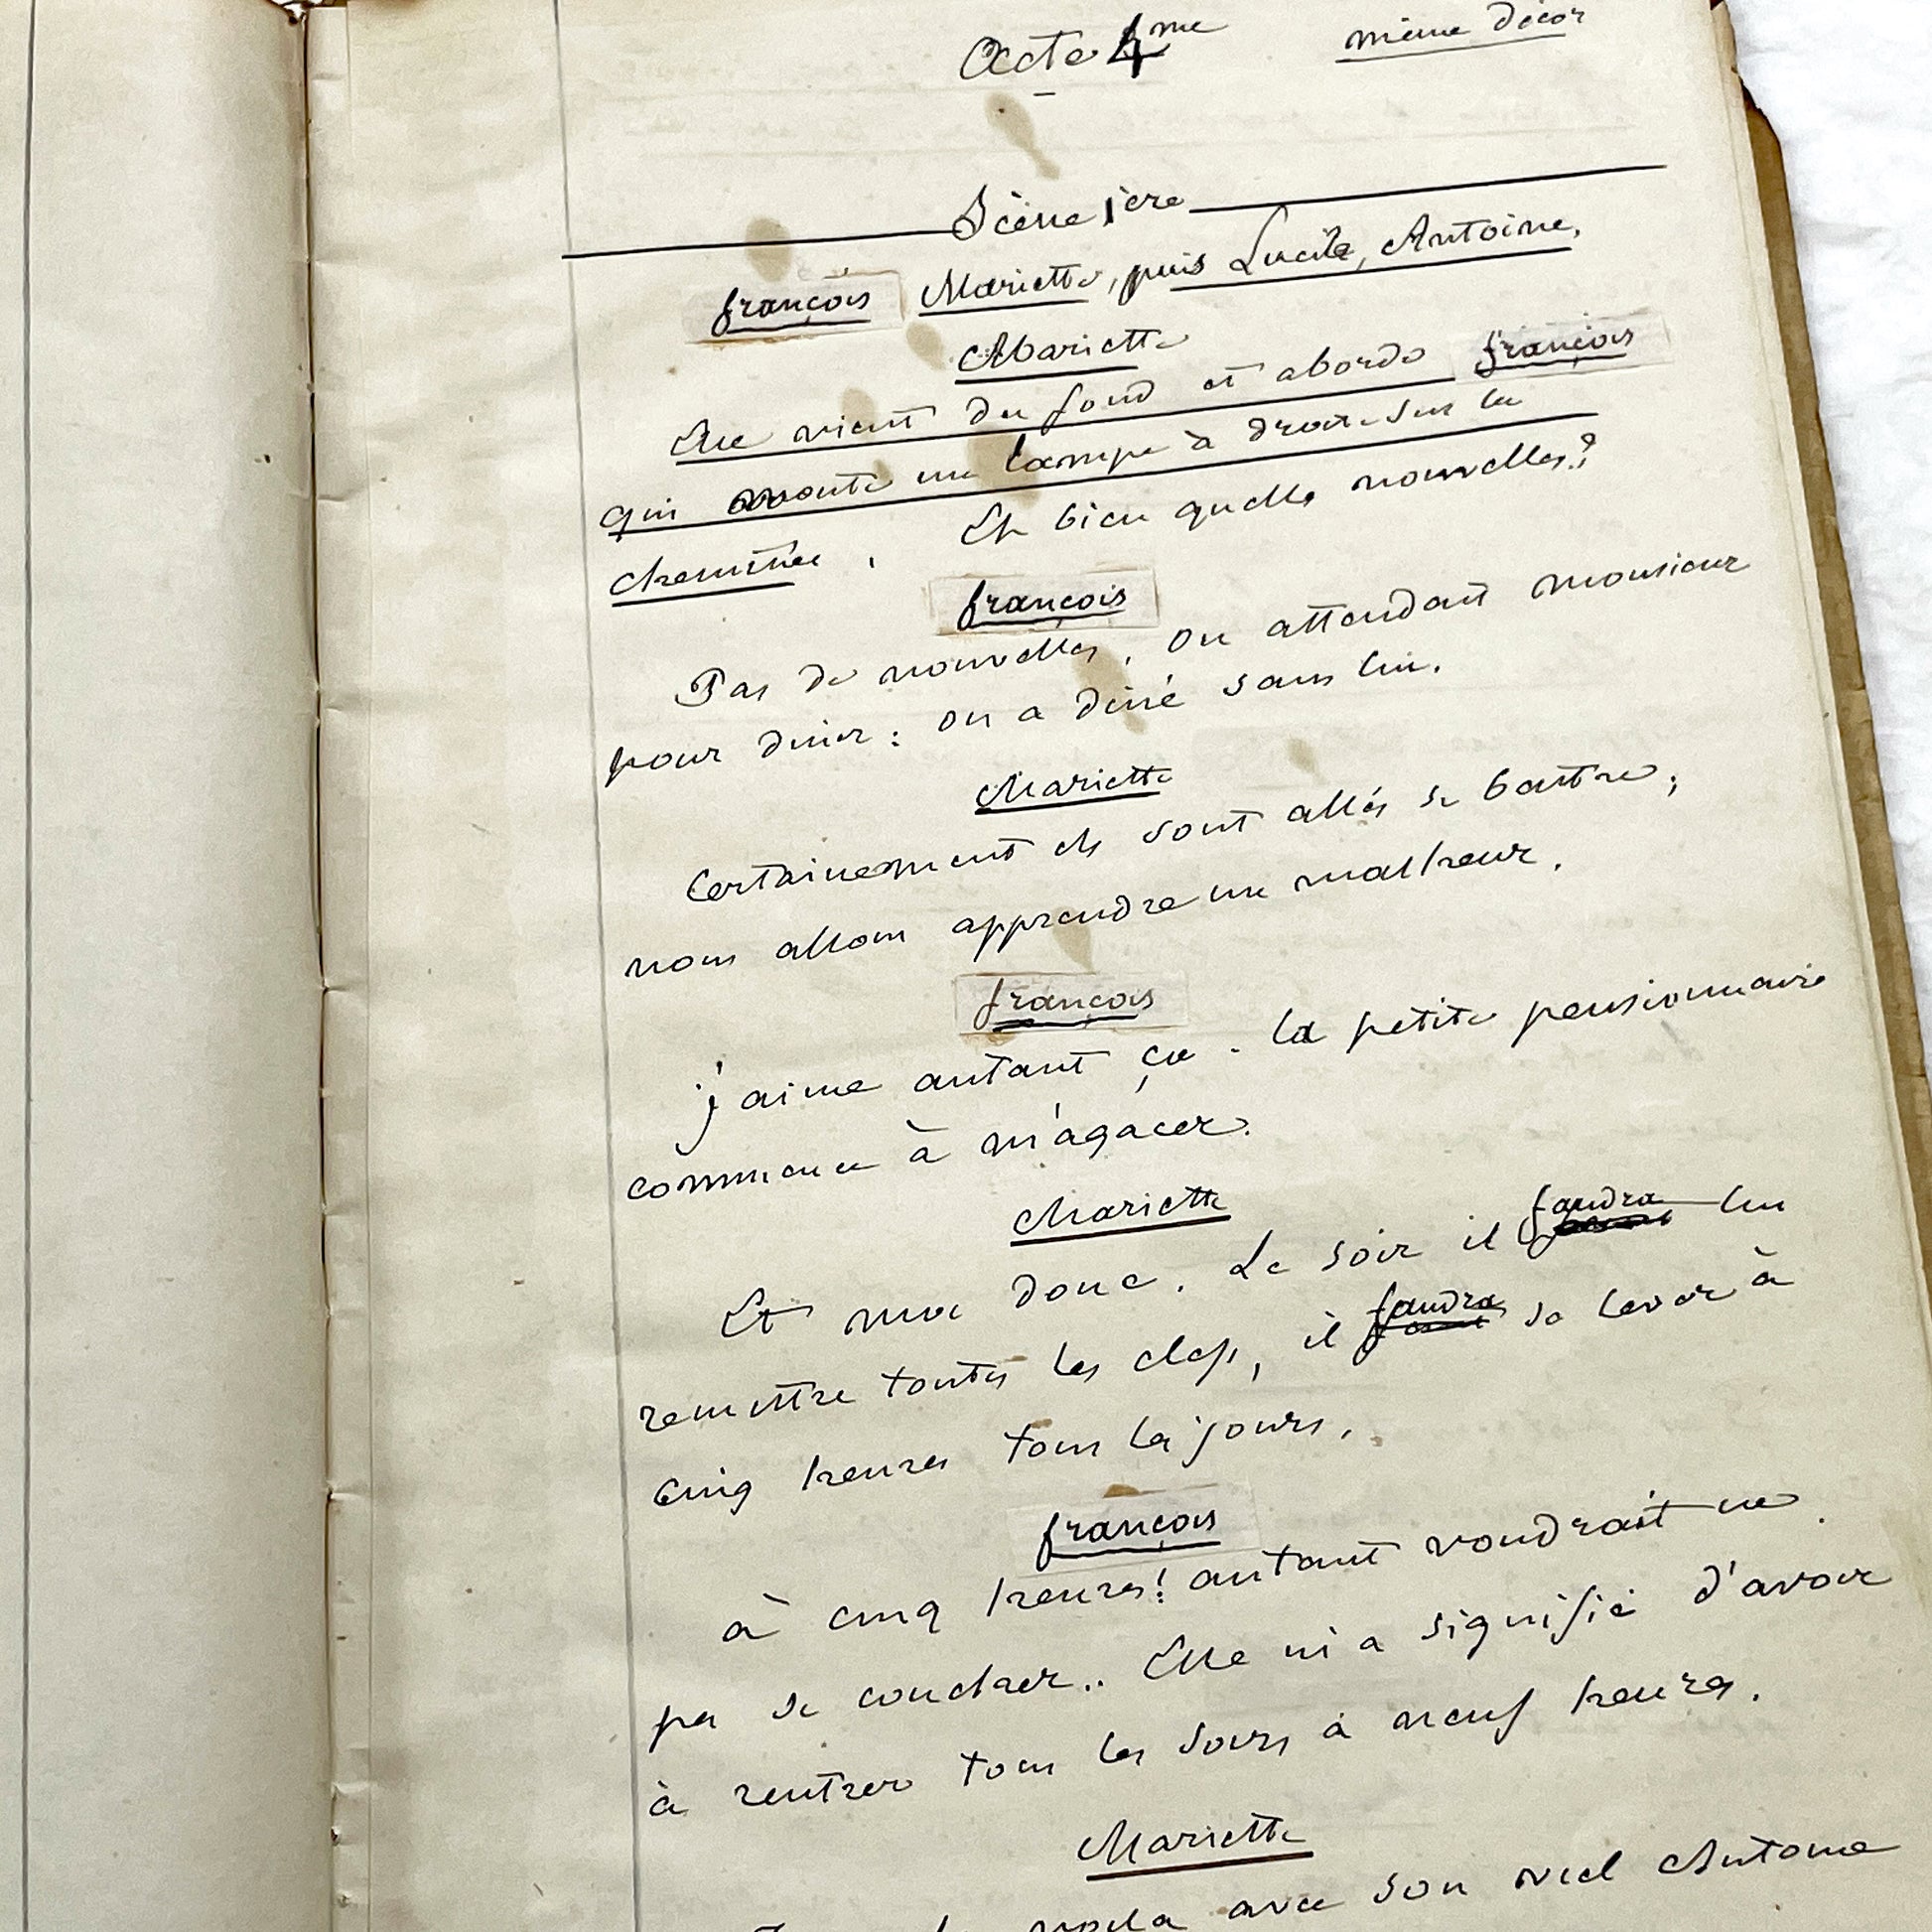 Acte 4me même décor
Scène 1ère
françois Mariette, puis Lucile, Antoine.
Mariette
Elle vient du fond et aborde françois
qui monte une lampe à droite sur la
cheminée. Eh bien quelles nouvelles?
françois
Pas de nouvelles, on attendait monsieur
pour diner: on a diné sans lui.
Mariette
Certainement ils sont allés se battre;
nous allons apprendre un malheur.
françois
j'aime autant ça. la petite pensionnaire
commence à m'agacer.
Mariette
Et moi donc. Le soir il faudra lui
remettre toutes les clefs, il faudra se lever à
cinq heures tous les jours.
françois
à cinq heures! autant voudrait ne
pas se coucher.. Elle m'a signifié d'avoir
à rentrer tous les soirs à neuf heures.
Mariette
voila avec son vieil Antoine